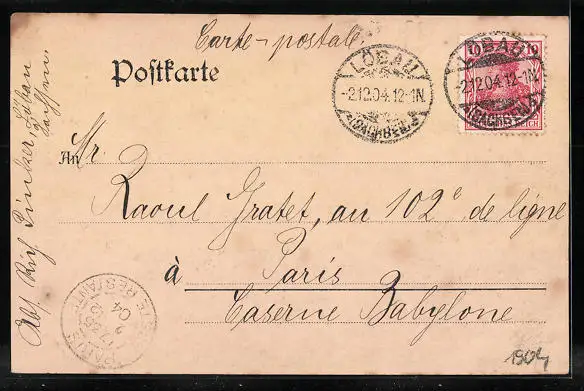 Carte-postale.
Postkarte
LÖBAU
-2.12.04. 12-1N.
(SACHSEN)
10 10
LÖBAU
-2.12.04. 12-1N.
(SACHSEN)
REICH
An
Mr.
Raoul Gratet, au 102e de ligne
à Paris
Caserne Babylone
Abs. Rich. Pinker, Löbau
Sachsen.
PARIS
RESTANTE
04
1904